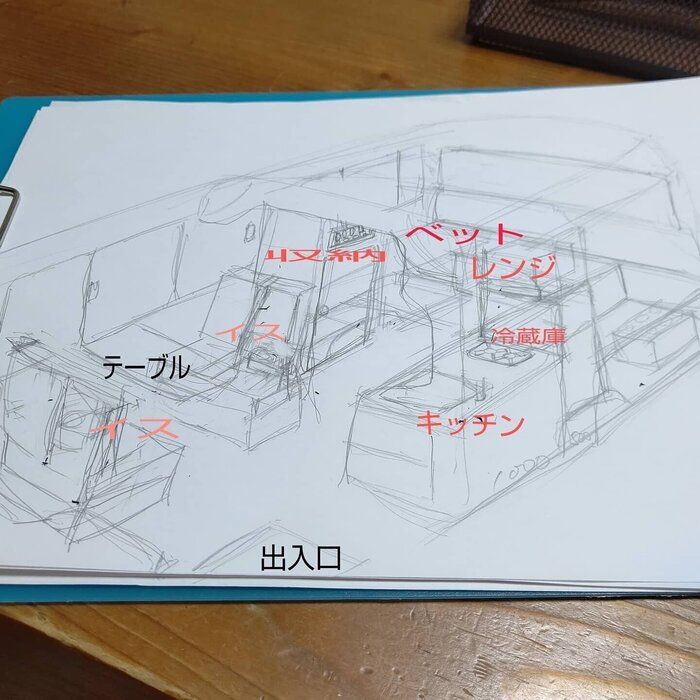 ベット
収納
レンジ
イス
冷蔵庫
テーブル
イス
キッチン
出入口